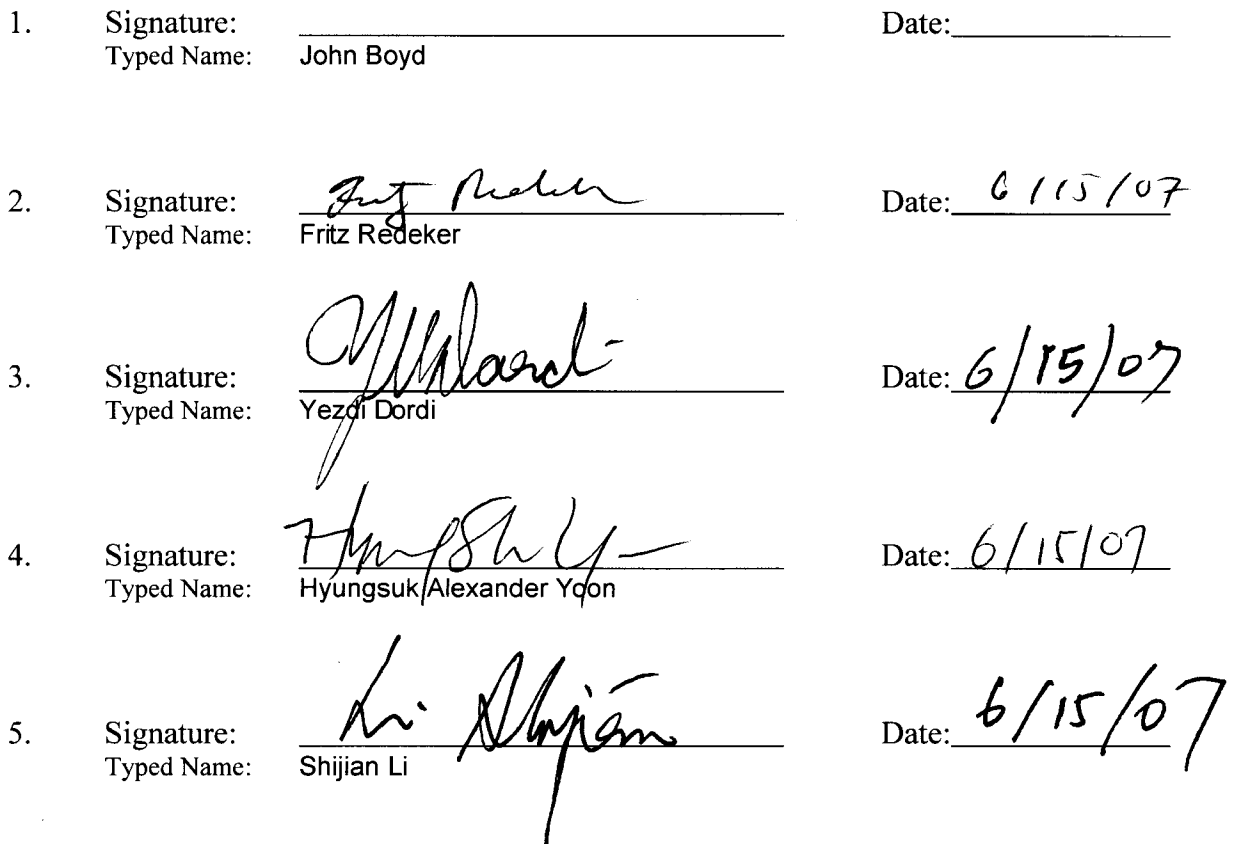 1. Signature: Date:
Typed Name: John Boyd
2. Signature: Fritz Redeker Date: 6/15/07
Typed Name: Fritz Redeker
3. Signature: Date: 6/15/07
Typed Name: Yezdi Dordi
4. Signature: Date: 6/15/07
Typed Name: Hyungsuk Alexander Yoon
5. Signature: Li Shijian Date: 6/15/07
Typed Name: Shijian Li